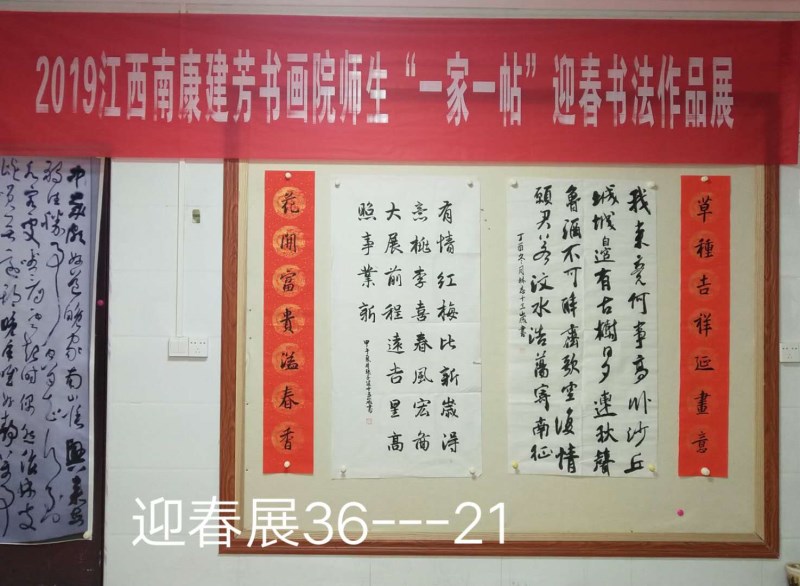 2019江西南康建芳书画院师生“一家一帖”迎春书法作品展
草種吉祥延畫意
我来竟何事高卧沙丘
城城邊有古樹日夕連秋聲
魯酒不可醉齊歌空復情
思君若汶水浩蕩寄南征
有情紅梅比新歲得
意桃李喜春風宏圖
大展前程遠吉星高
照事業新
花開富貴溢春香
中歲頗好道晚家南山陲興来每
迎春展36---21